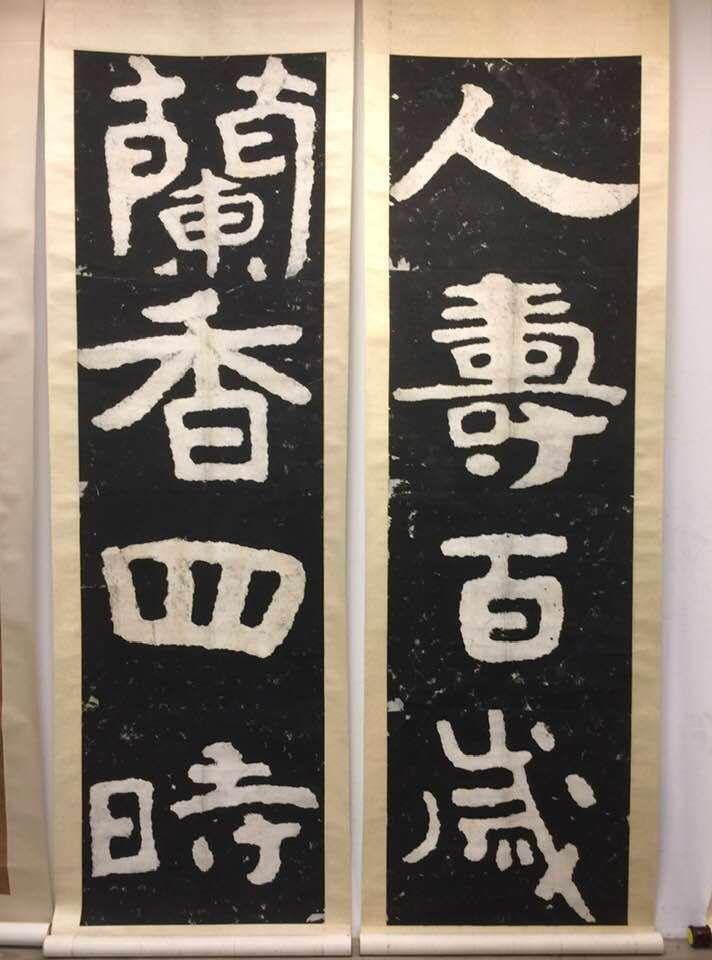 人壽百歲
蘭香四時